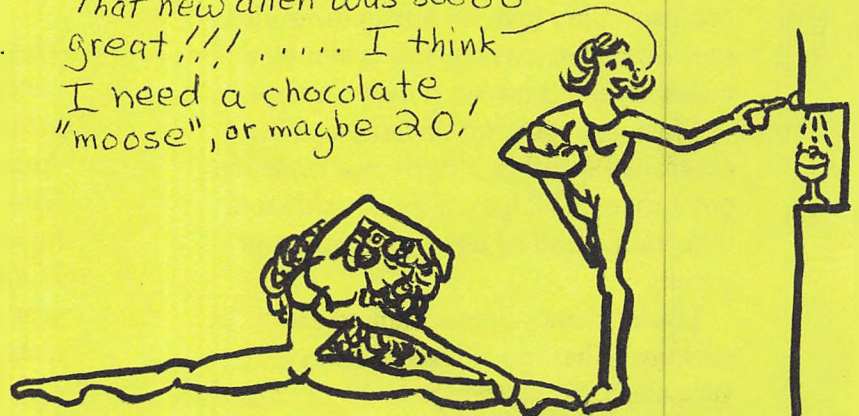 That new alien was soooo
great!!! ..... I think
I need a chocolate
"moose", or maybe 20!